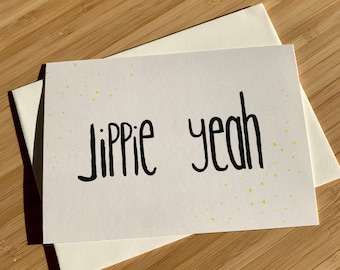 Jippie yeah